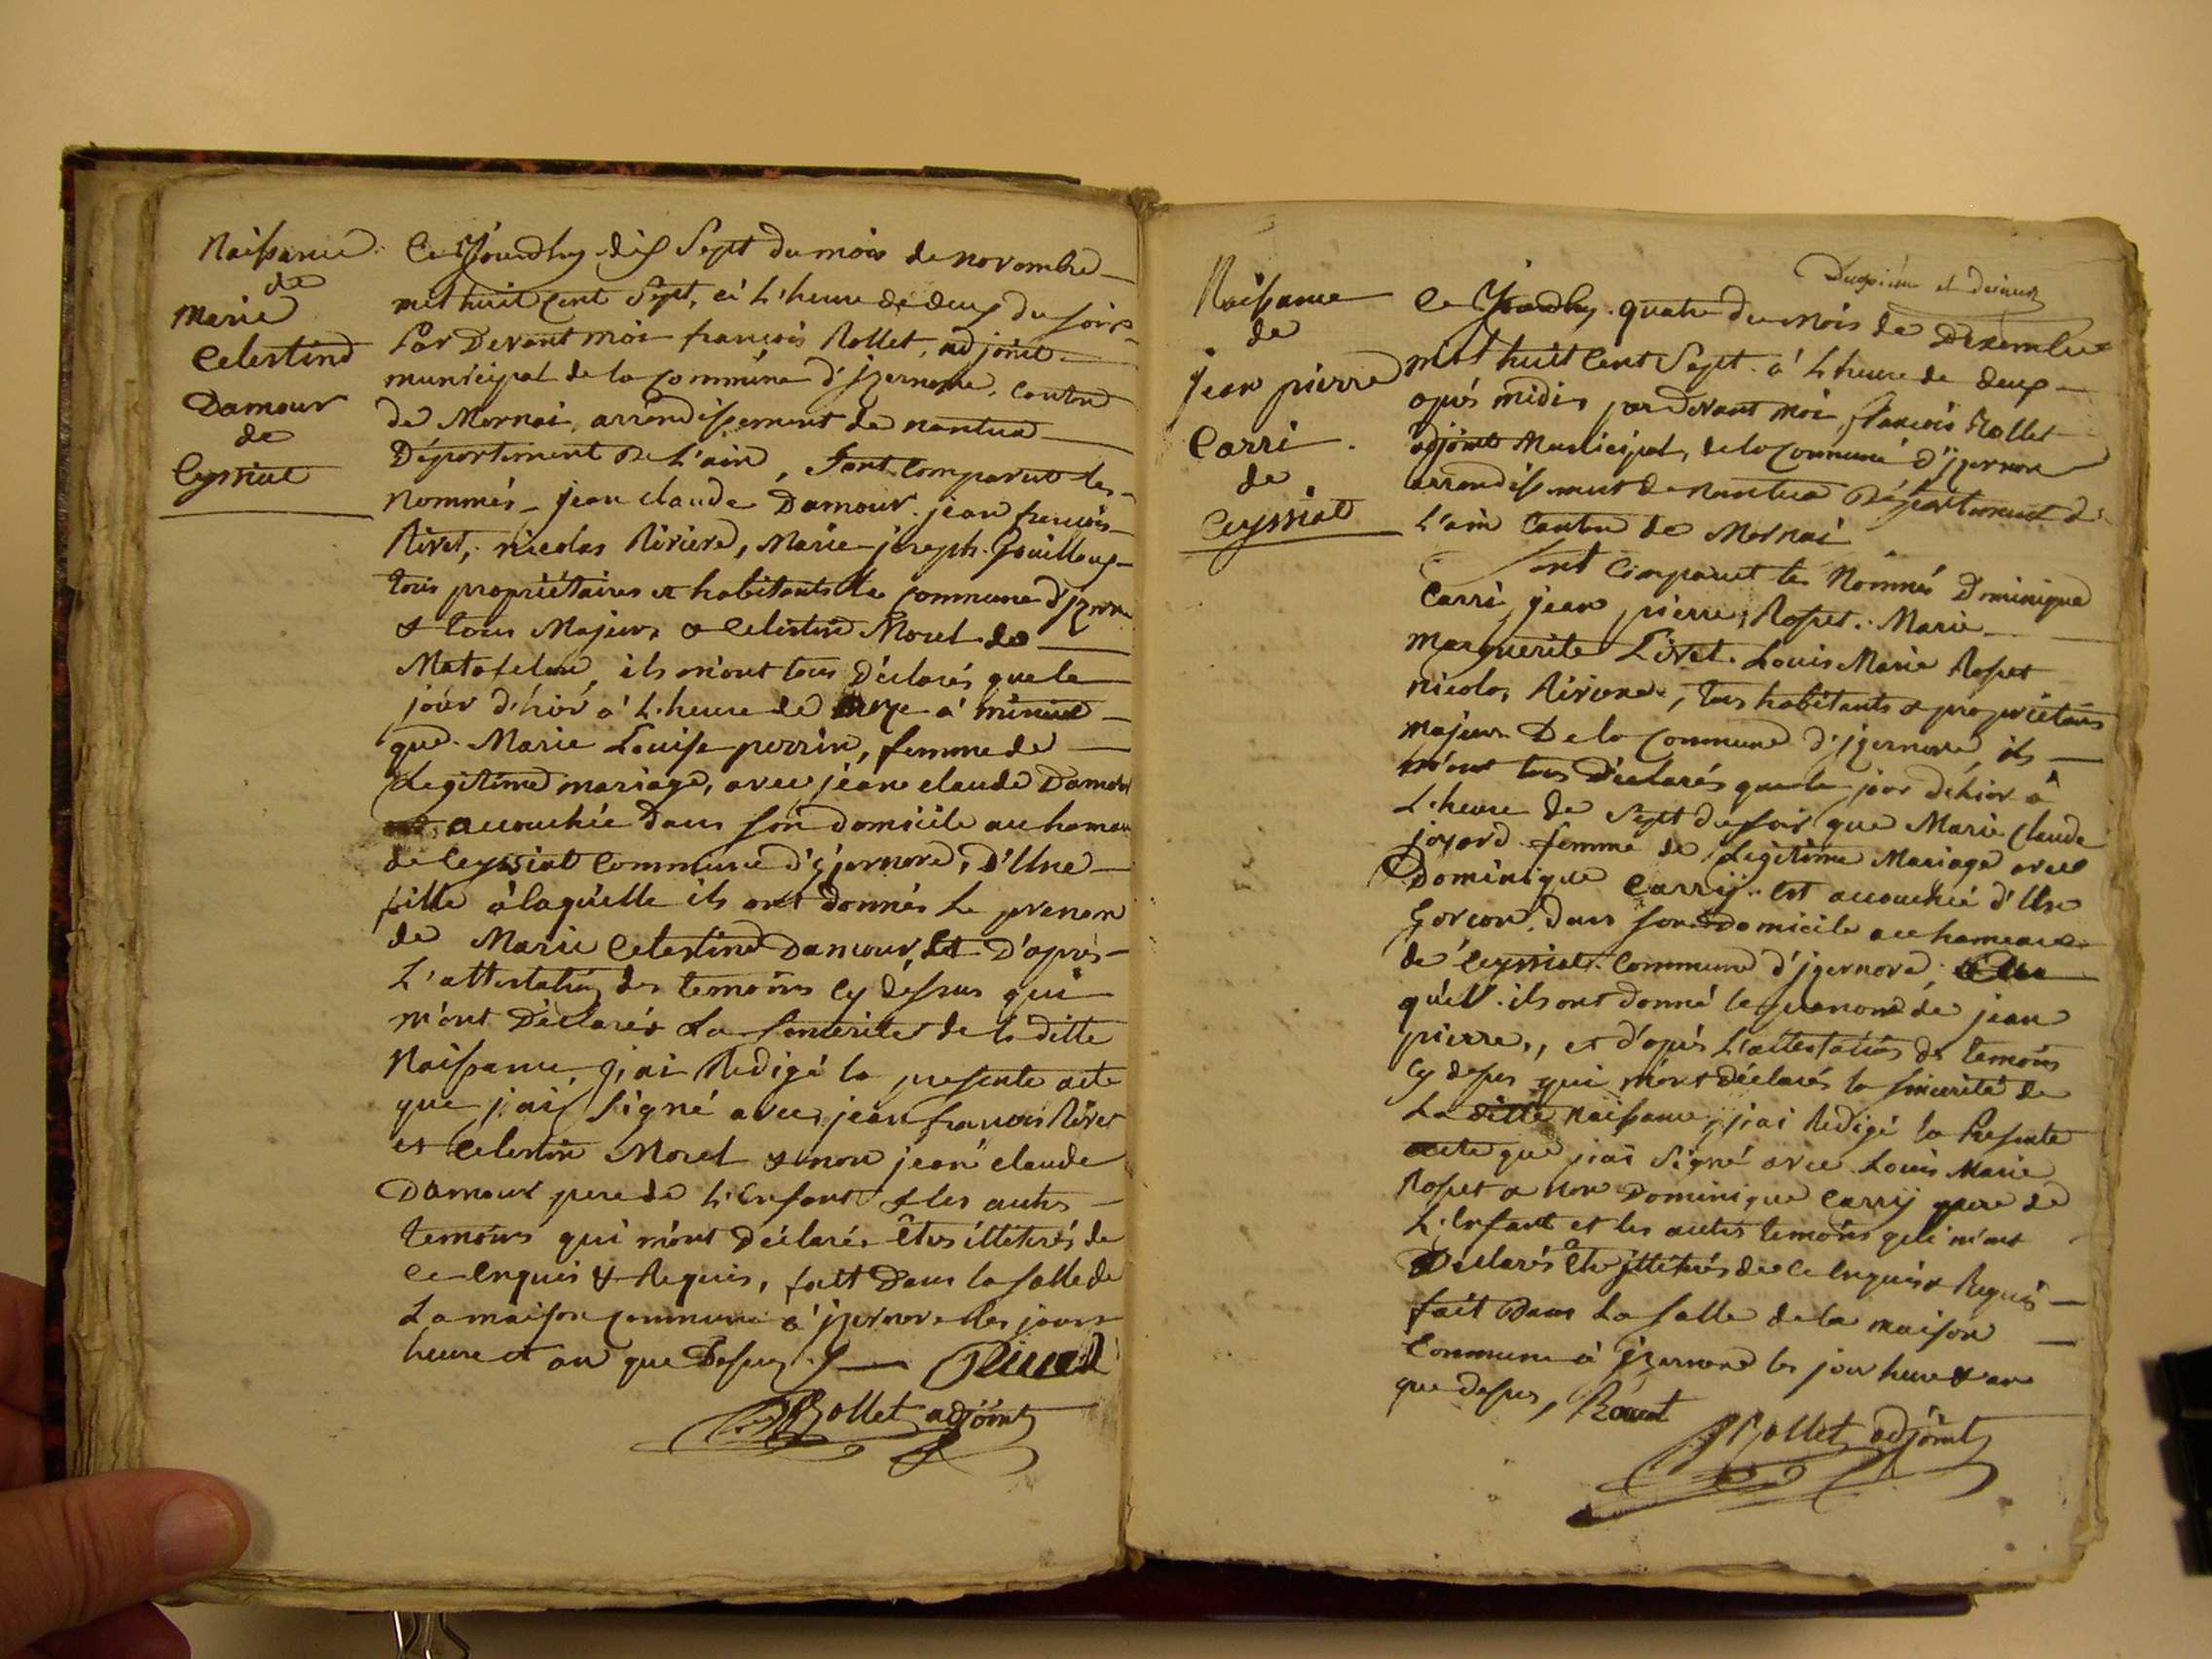 Naissance
de
Marie
Celestine
Damour
de
Ceyssiat
Ce Jourdhuy dix Sept du mois de novembre
mil huit Cent Sept, a L'heure de deux du soir
Par Devant moi françois Rollet, adjoint
municipal de la Commune d'izernore, Canton
de Mornai, arrondissement de nantua
Département de L'ain, Sont Comparut les
Nommés jean claude Damour. jean françois
Rivet, nicolas Riviere, Marie joseph Gouilloux
tous propriétaires et habitants de commune d'izernore
& tous Majeurs & Celestin Morel de
Matafelon, ils m'ont tous Déclarés que le
jour d'hior a L'heure de à minuit
que Marie Louise perrin, femme de
Legitime mariage, avec jean claude Damour
accouchée dans son domicile au hameau
de Ceyssiat Commune d'izernore, D'Une
fille à laquelle ils ont donnés Le prenom
de Marie Celestine Damour, et D'apres
L'attestation des temoins Cy dessus qui
m'ont Déclarés La Sincerite de la ditte
Naissance, j'ai Redigé la presente acte
que j'ai Signé avec jean francois Rivet
et Celestin Morel & non jean claude
Damour pere de L'Enfant & les autres
temoins qui m'ont Déclarés Etres illiterés de
ce Enquis & Requis, fait Dans la salle de
La maison commune a izernore les jours
heure et an que Dessus Rivet
Rollet adjoint
Naissance
de
jean pierre
Carri
de
Ceyssiat
et dernier
Ce Jourdhuy quatre du mois de Dexembre
mil huit Cent Sept a L'heure de deux
après midi, par devant moi, francois Rollet
adjoint Municipal, de la Commune d'izernore
arrondissement de nantua Département de
L'ain Canton de Mornai
Sont Comparut les Nommés Dominique
Carri, jean pierre, Rosset. Marie
Marguerite Livet. Louis Marie Rosset
nicolas Riviere, tous habitants & propriétaires
majeurs De la Commune d'izernore, ils
m'ont tous Déclarés que le jour dehior a
L'heure de Sept du soir que Marie Claude
joyard femme de Legitime Mariage avec
Dominique Carrij est accouchée d'Un
Garcon. dans son domicile au hameau
de Ceyssiat. Commune d'izernore;
qu'el. ils ont donné le prenom de jean
pierre, et d'après L'attestation des temoins
Cy dessus qui m'ont déclarés la sincerité de
La ditte naissance, j'ai Redigé la Presente
acte que j'ai Signé avec Louis Marie
Rosset & non Dominique Carrij pere de
L'Enfant et les autres temoins qui m'ont
Declarés Etre illiterés de ce Enquis & Requis
fait dans La salle de la maison
Commune à izernore les jour heure & an
que dessus,
Rollet adjoint